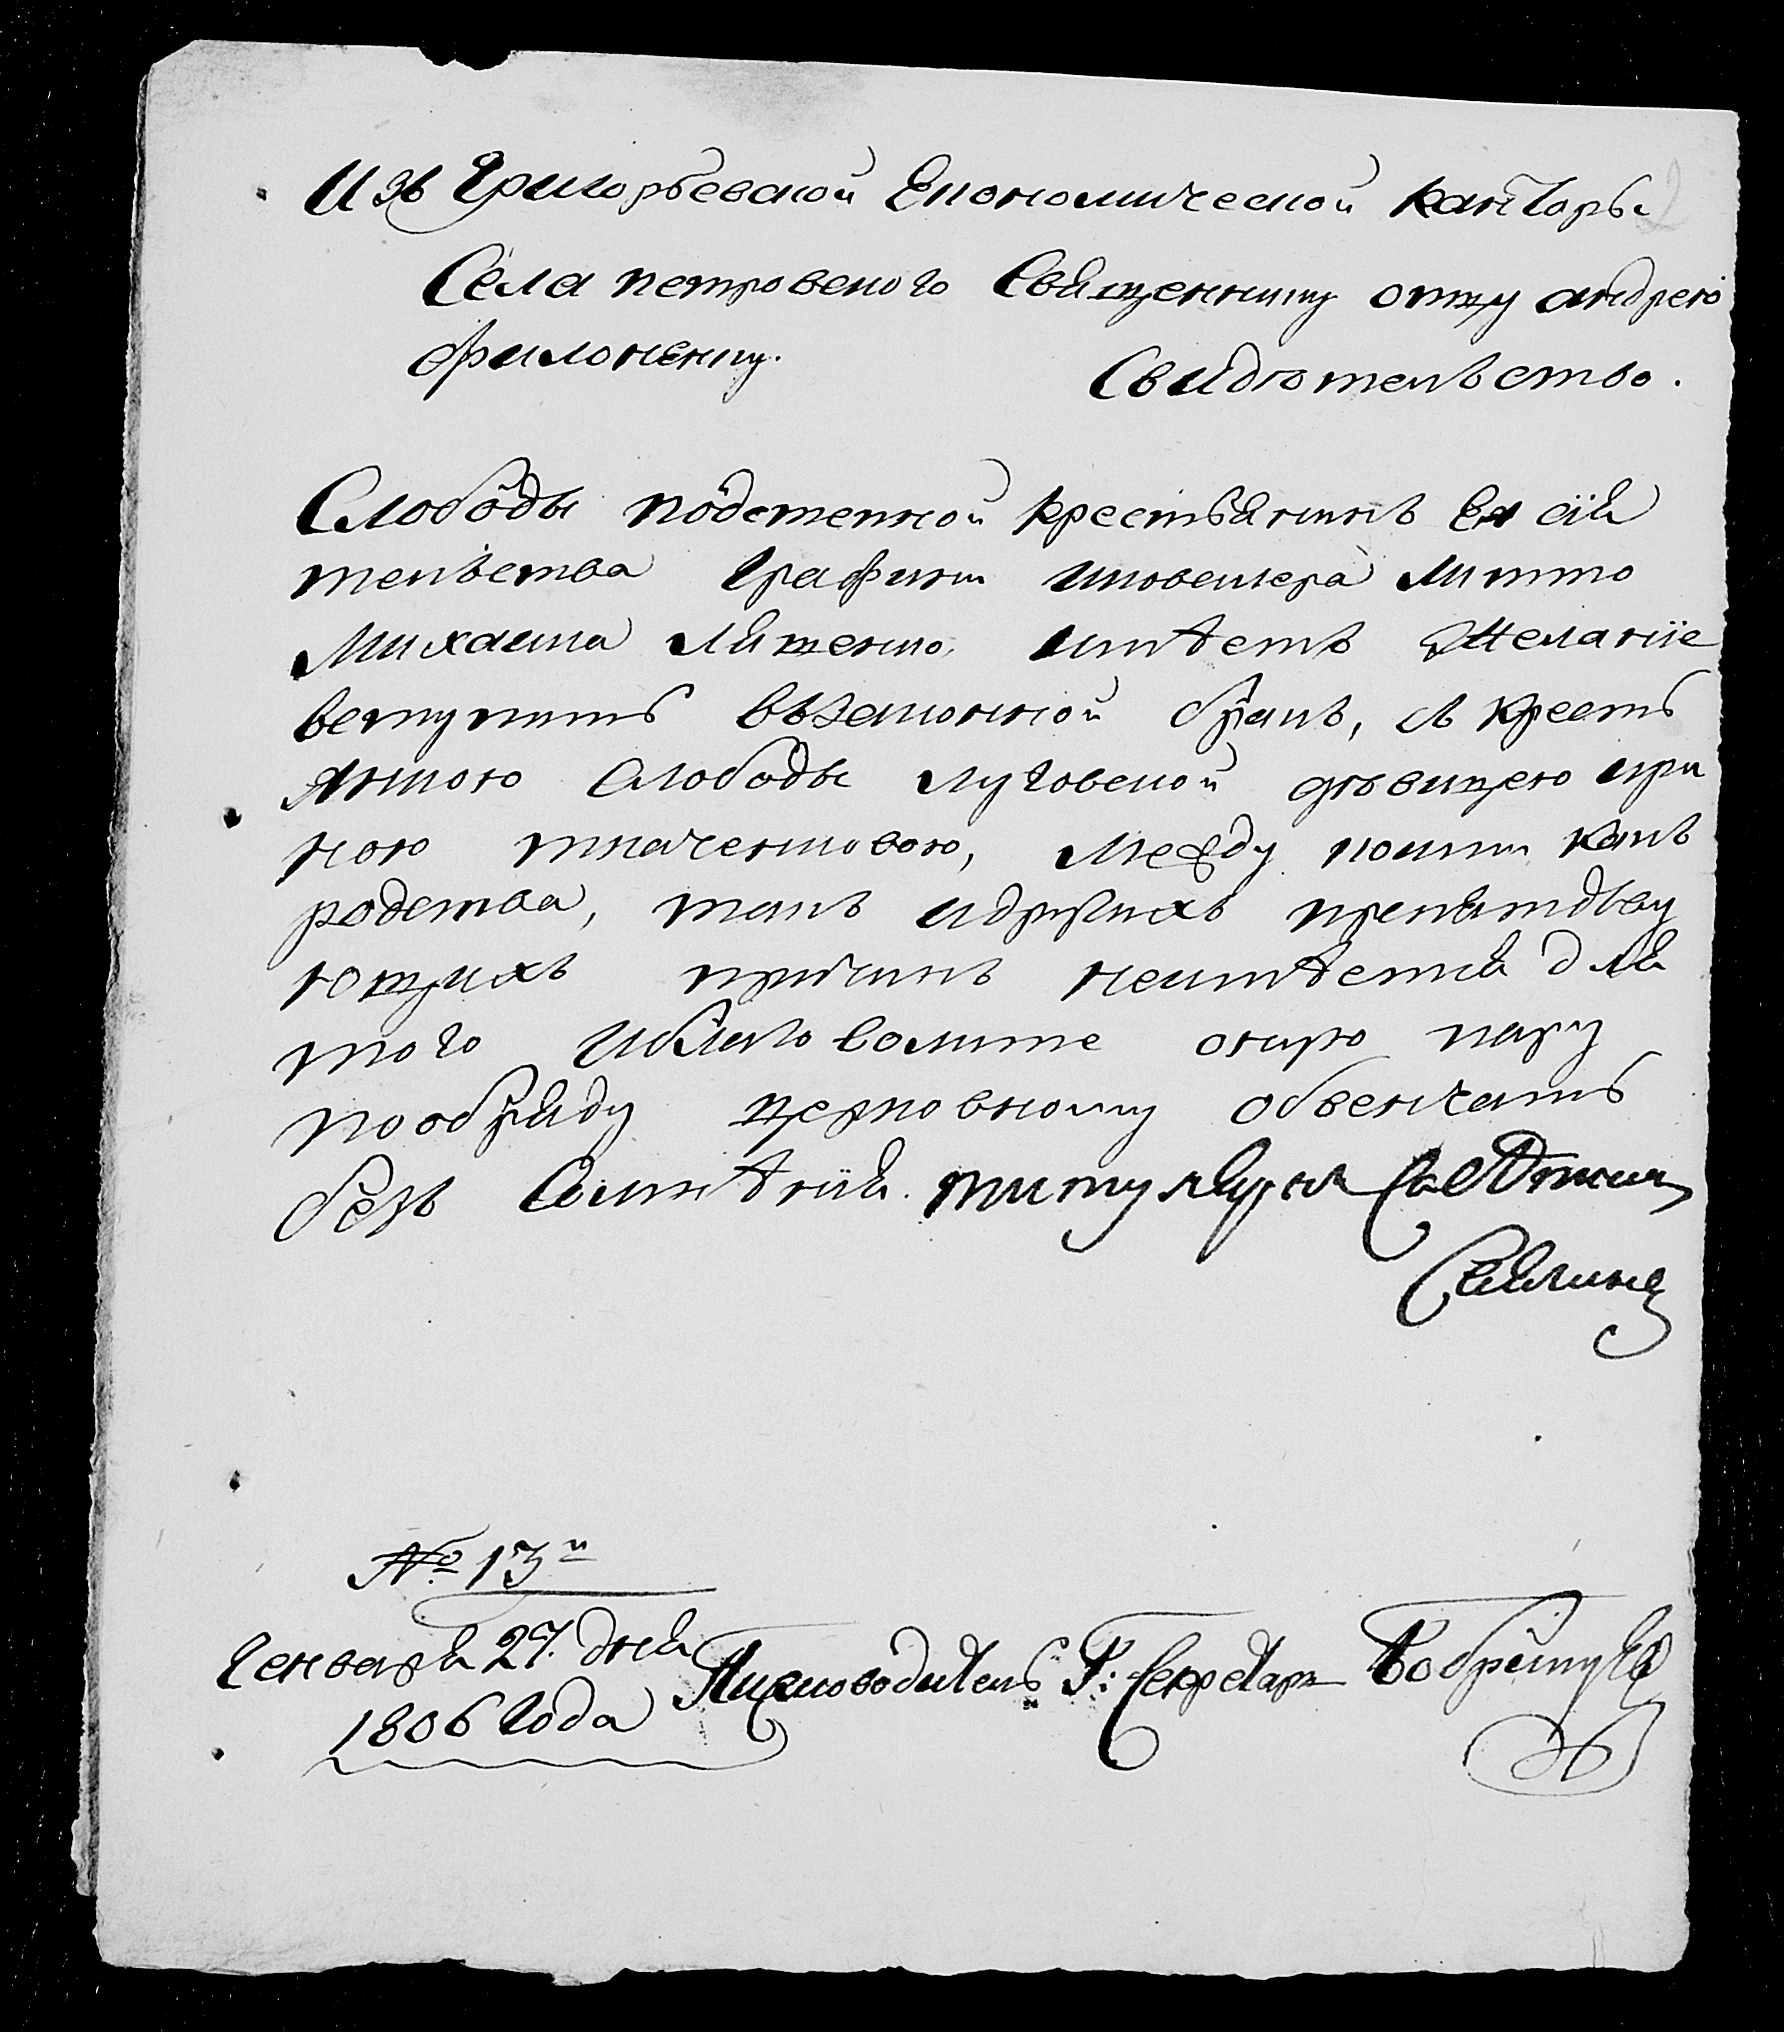 Изъ Григорьевской Економической канторы
Села петровского Священнику отцу андрею
филоненку.
Свидѣтельство.
Слободы подстепной крестьянинъ Ея сія
тельства Графини Литто
Михаила имѣетъ желаніе
вступить взаконной бракъ, съ крестъ
янкою Слободы луговской дѣвицею ири
ною ткаченковою, между коими какъ
родства, так идругихъ
ющихъ причинъ неимѣется для
того иблаговолите оную пару
пообряду церковному обвенчать
безъ Сомнѣнія. титулярный Совѣтникъ
№ 13й
Генваря 27. дня
1806 Года
Писмоводитель Г: Секретарь